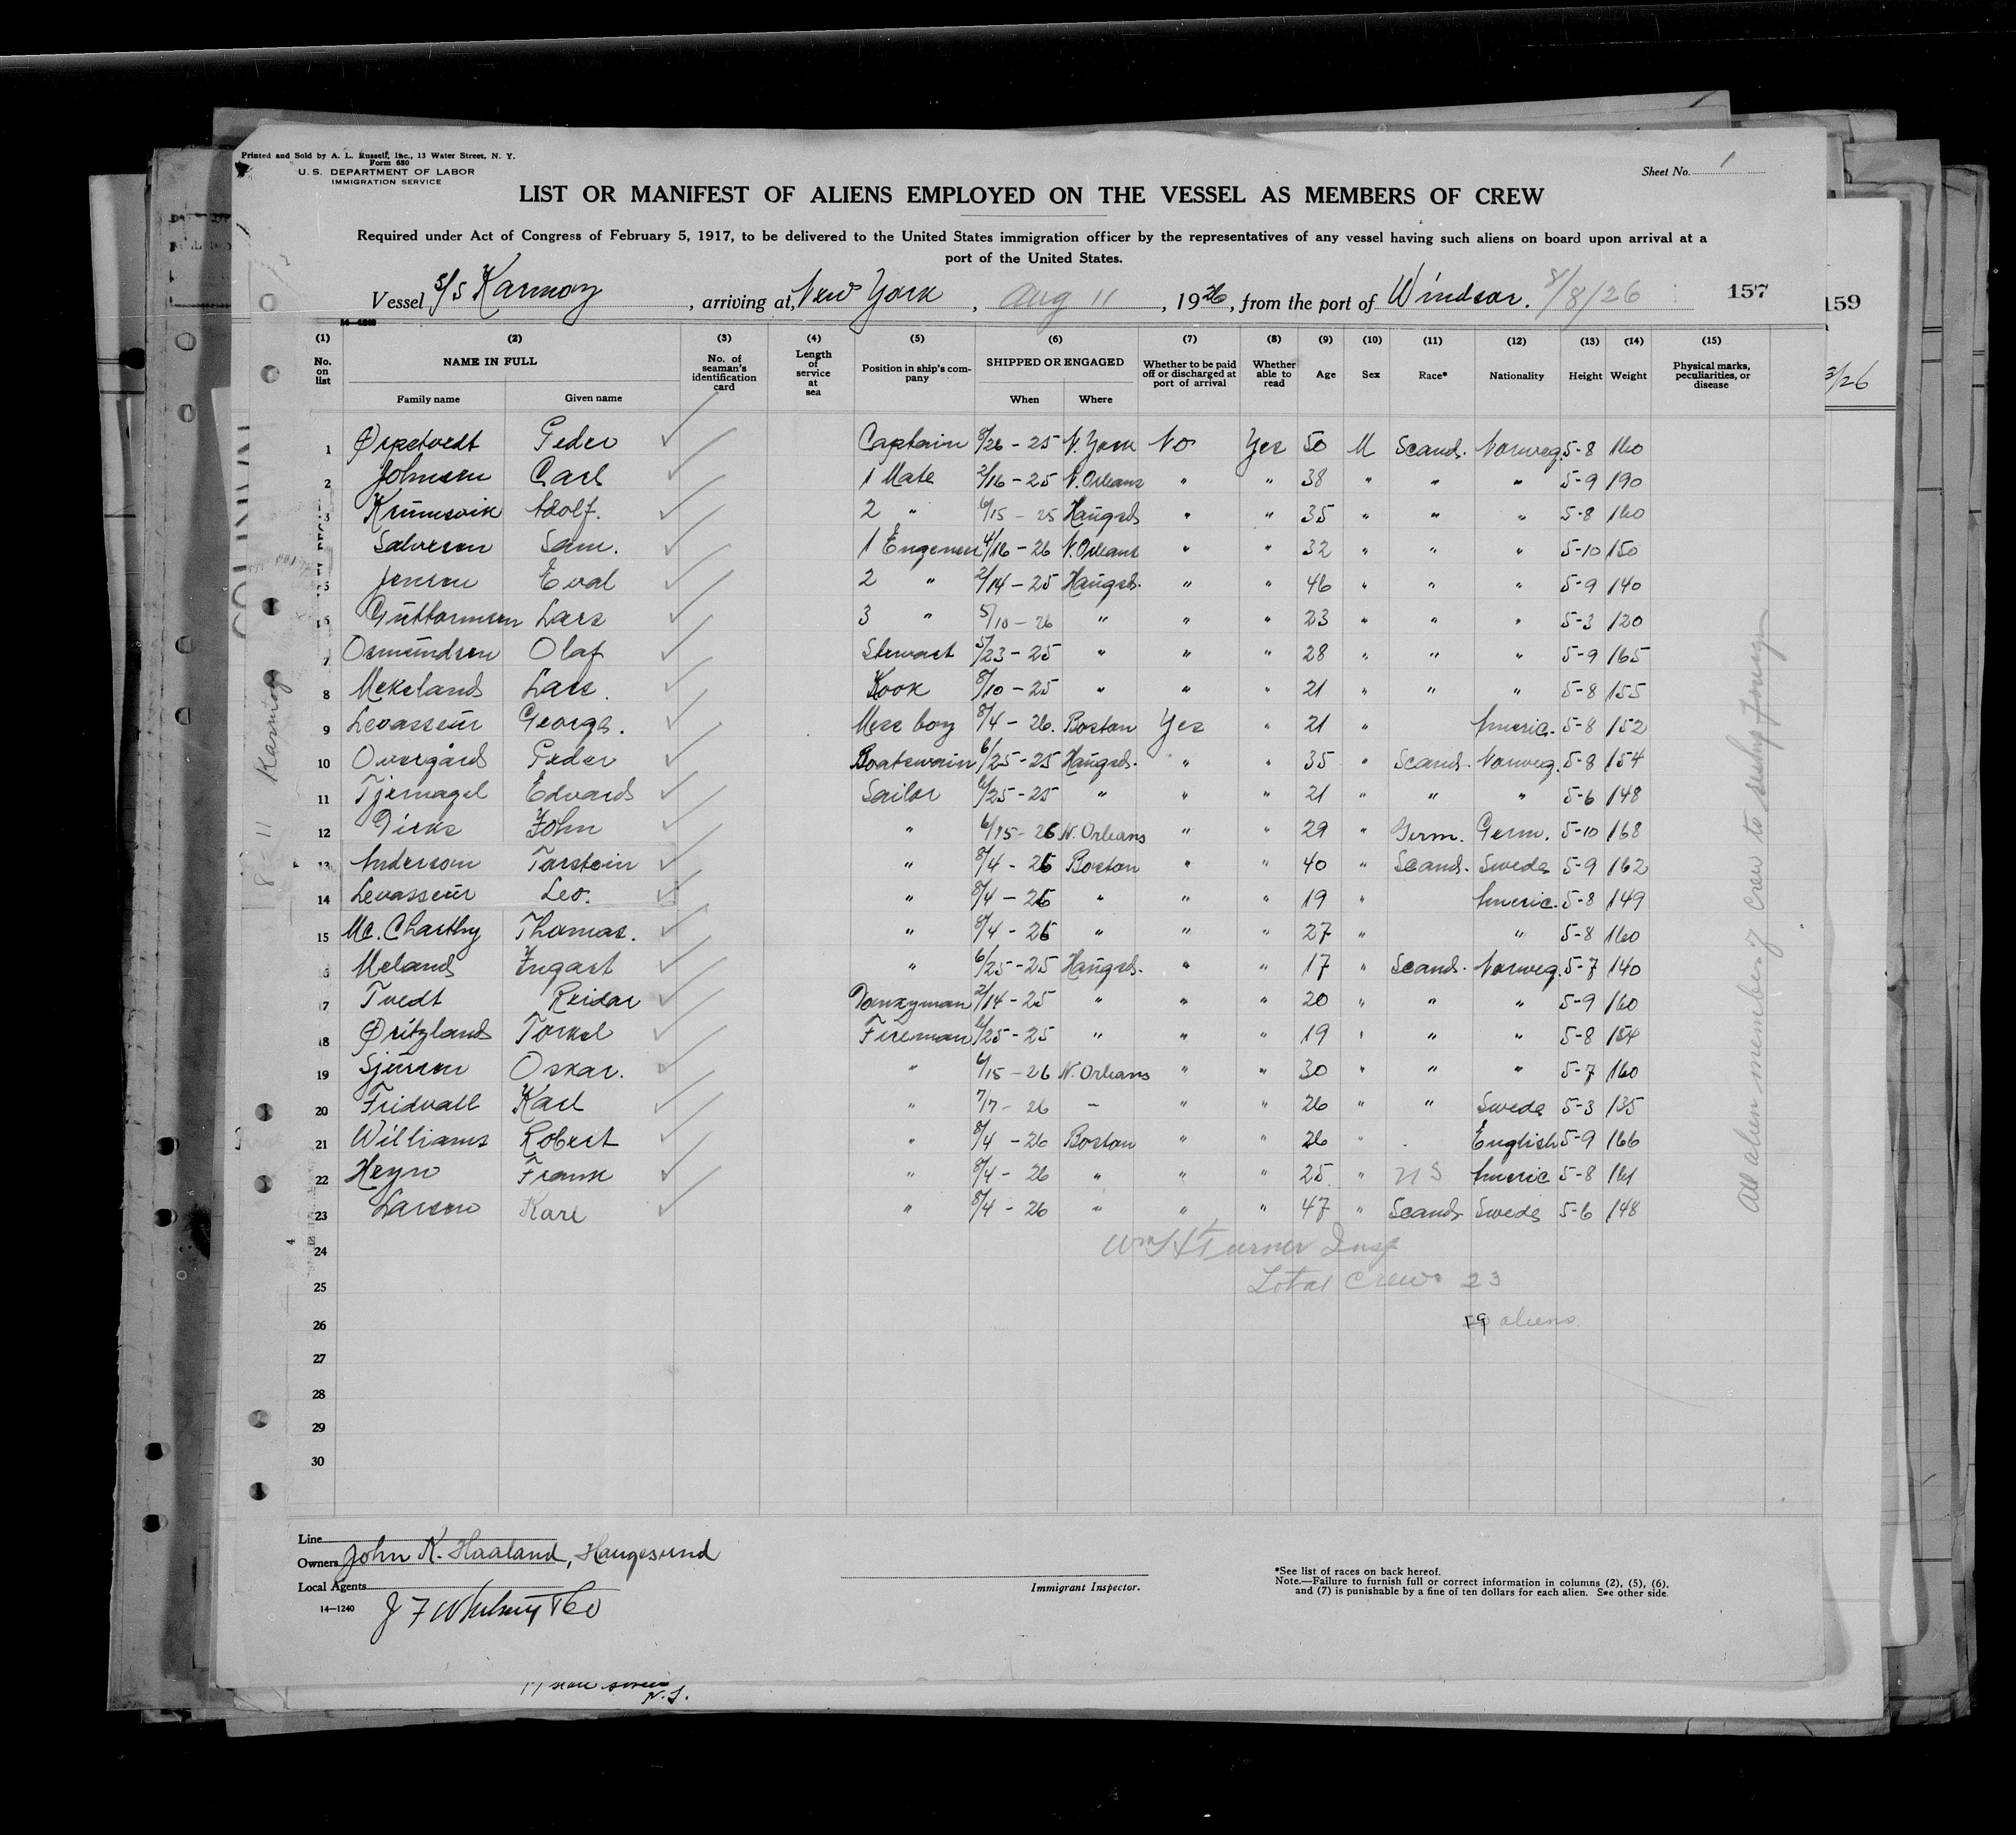 Printed and Sold by A. L. Russell, Inc., 13 Water Street, N. Y.
Form 680
U. S. DEPARTMENT OF LABOR
IMMIGRATION SERVICE
Sheet No. 1
LIST OR MANIFEST OF ALIENS EMPLOYED ON THE VESSEL AS MEMBERS OF CREW
Required under Act of Congress of February 5, 1917, to be delivered to the United States immigration officer by the representatives of any vessel having such aliens on board upon arrival at a
port of the United States.
Vessel S/S Karmoy, arriving at, New York, Aug 11, 1926, from the port of Windsor. 8/8/26 157
159
3/26
14-1240
(1) (2) (3) (4) (5) (6) (7) (8) (9) (10) (11) (12) (13) (14) (15)
No. on list NAME IN FULL No. of seaman's identification card Length of service at sea Position in ship's company SHIPPED OR ENGAGED Whether to be paid off or discharged at port of arrival Whether able to read Age Sex Race* Nationality Height Weight Physical marks, peculiarities, or disease
Family name Given name When Where
1 Peder Captain 8/26-25 N. York No Yes 50 M Scand. Norweg. 5-8 160
2 Johnsen Carl 1 Mate 2/16-25 N. Orleans " " 38 " " " 5-9 190
3 Adolf. 2 " 6/15-25 Haugsd. " " 35 " " " 5-8 160
Salvesen Sam. 1 Engeneer 4/16-26 N. Orleans " " 32 " " " 5-10 150
5 Jensen Eval 2 " 2/14-25 Haugsd. " " 46 " " " 5-9 140
6 Guttormsen Lars 3 " 5/10-26 " " " 23 " " " 5-3 120
7 Osmundsen Olaf Stewart 5/23-25 " " " 28 " " " 5-9 165
8 Mekeland Lars. Kook 8/10-25 " " " 21 " " " 5-8 155
9 Levasseur George. Mess boy 8/4-26. Boston Yes " 21 " Americ. 5-8 152
10 Overgård Peder Boatswain 6/25-25 Haugsd. " " 35 " Scand. Norweg. 5-8 154
11 Tjernagel Edvard Sailor 6/25-25 " " " 21 " " " 5-6 148
12 Dirks John " 6/15-26 N. Orleans " " 29 " Germ. Germ. 5-10 168
13 Anderson Torstein " 8/4-26 Boston " " 40 " Scand. Swede 5-9 162
14 Levasseur Leo. " 8/4-26 " " " 19 " Americ. 5-8 149
15 Mc. Charthy Thomas. " 8/4-26 " " " 27 " " 5-8 160
Meland Ingart " 6/25-25 Haugsd. " " 17 " Scand. Norweg. 5-7 140
7 Tvedt Reidar Donkyman 2/14-25 " " " 20 " " " 5-9 160
8 Torkel Fireman 6/25-25 " " " 19 " " " 5-8 154
19 Sjursen Oskar. " 6/15-26 N. Orleans " " 30 " " " 5-7 160
20 Fridvall Karl " 7/7-26 - " " 26 " " Swede 5-3 135
21 Williams Robert " 8/4-26 Boston " " 26 " English 5-9 166
22 Heyn Frank " 8/4-26 " " " 25 " U S Americ 5-8 161
23 Larsen Karl " 8/4-26 " " " 47 " Scand Swede 5-6 148
24 Wm H Turner Insp
25 Total Crew 23
26 19 aliens
27
28
29
30
All alien members of crew to reship foreign
8-11 Karmoy
Line
Owners John K. Haaland, Haugesund
Local Agents
14-1240
J F Whitney & Co
Immigrant Inspector.
*See list of races on back hereof.
Note.—Failure to furnish full or correct information in columns (2), (5), (6),
and (7) is punishable by a fine of ten dollars for each alien. See other side.
N. J.